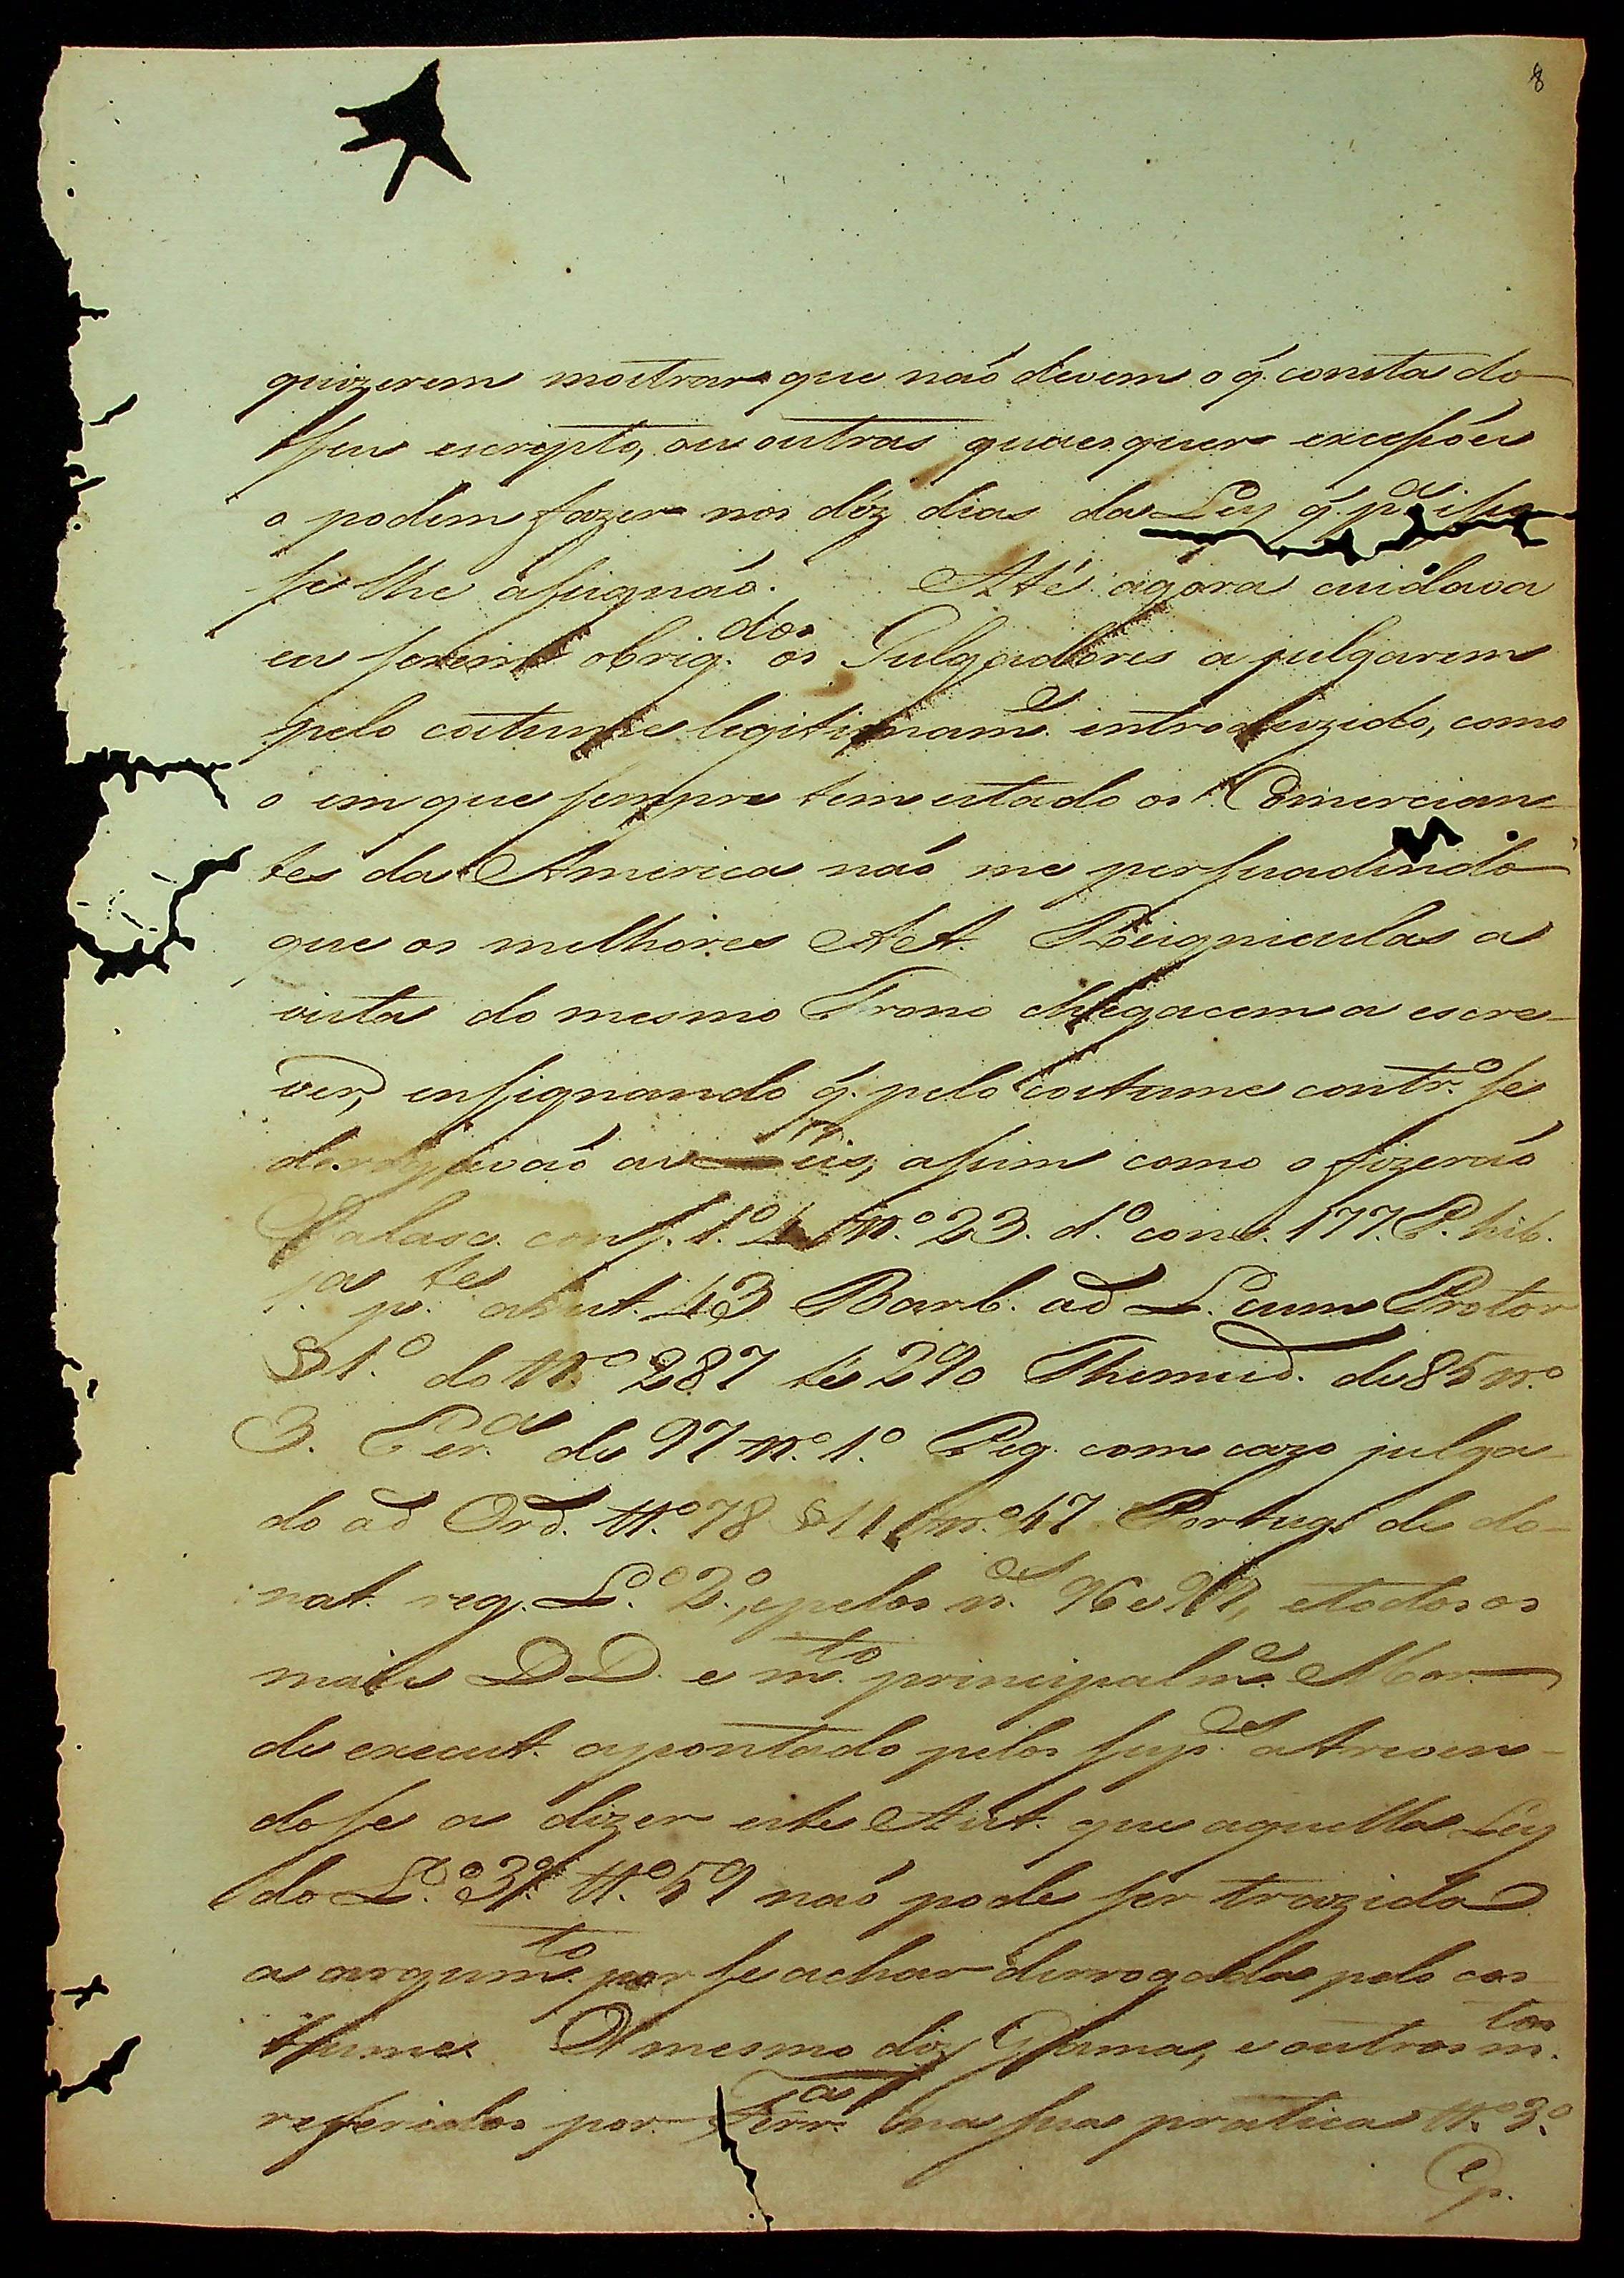 8
quizerem mostrar que naó devem o q̃. consta do
seu escripto, ou outras quaesquer excessóes
o podem fazer nos déz dias da Ley q̃. p.ª isso
se lhe assignaó. Até agora cuidava
eu serem obrig.dos os Julgadores a julgarem
pelo costume legitimam.e introduzido, como
o em que sempre tem estado os Comercian-
tes da America naó me persuadindo
que os melhores AA. Reignicolas a
vista do mesmo Trono chegacem a escre-
ver, ensignando q̃. pelo costume contr.o se
as Leis, assim como o fizeraó
Valasc. cons. 1.º n.º 23. d.º cons. 177. P. hib.
1.ª p.tes 43 Barb. ad L. cum Pretor
§ 1.º do n.º 287 té 290 Themud. de 85 n.º
3. Per.ª de 97 n.º 1.º Peg. com cazo julga-
do ad Ord. tt.º 78 § 11 n.º 47 Portug. de do-
nat. reg. L.º 2.º, e pelos n.es 96 e 97, e todos os
mais DD. e m.to principalm.e Mor.
de execut. apontado pelos sup.es atreven-
dose a dizer este Aut. que aquella Ley
do L.º 3.º tt.º 59 naó pode ser trazida
a argum.to por se achar derrogada pelo cos-
tume. O mesmo diz Gama, e outros m.tos
referidos por Ferr.ª na sua pratica tt.º 3.º